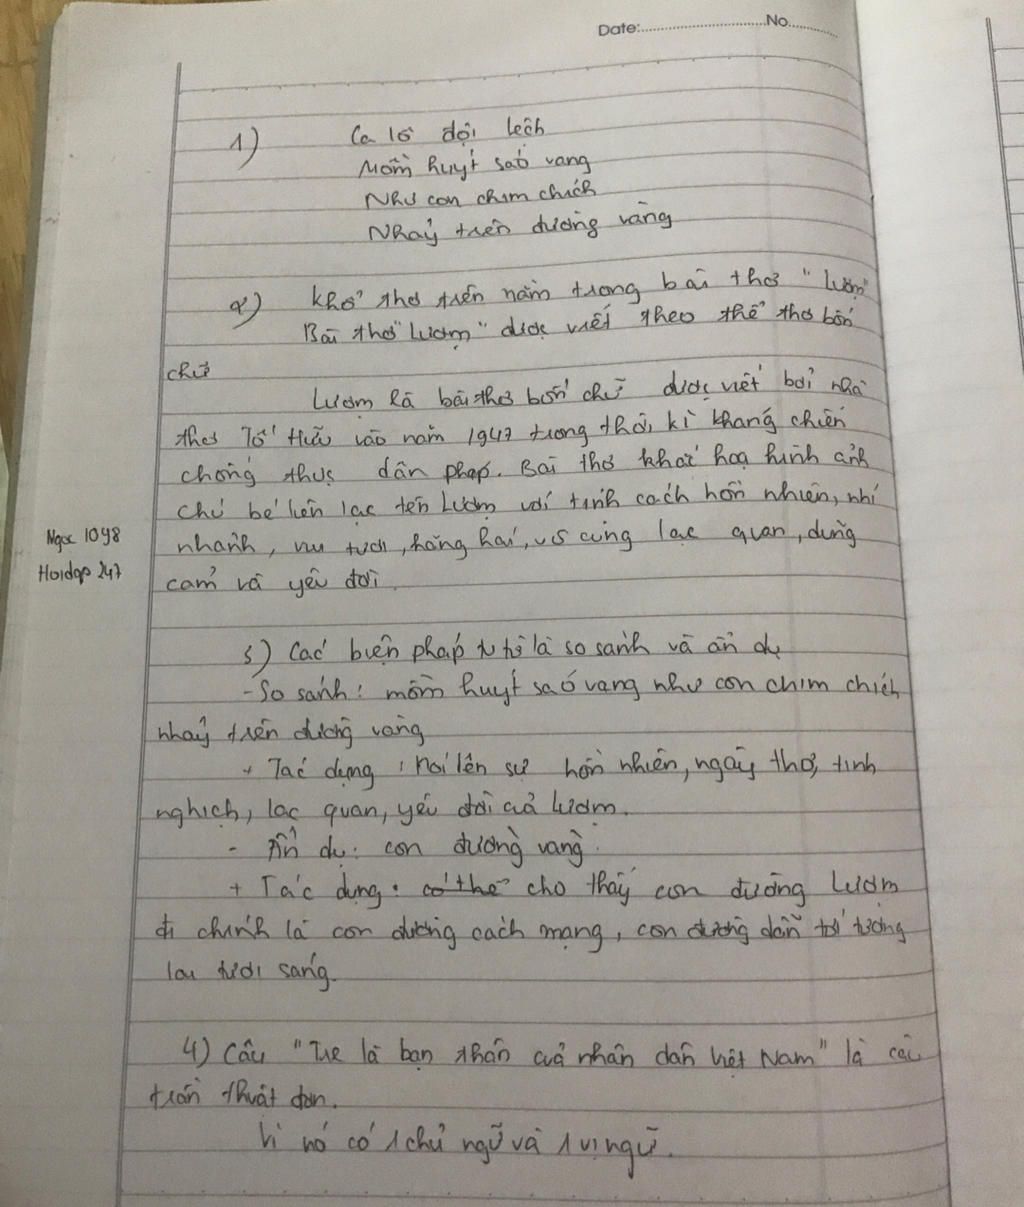 Date:..............................No..............
1) Ca lô đội lệch
Mồm huýt sáo vang
Như con chim chích
Nhảy trên đường vàng
2) Khổ thơ trên nằm trong bài thơ "Lượm"
Bài thơ "Lượm" được viết theo thể thơ bốn
chữ
Lượm là bài thơ bốn chữ được viết bởi nhà
thơ Tố Hữu vào năm 1947 trong thời kì kháng chiến
chống thực dân pháp. Bài thơ khắc hoạ hình ảnh
chú bé liên lạc tên Lượm với tính cách hồn nhiên, nhí
nhanh, vui tươi, hăng hái, vô cùng lạc quan, dũng
cảm và yêu đời.
Ngoc 1098
Hoidap 247
3) Các biện pháp tu từ là so sánh và ẩn dụ
- So sánh: mồm huýt sáo vang như con chim chích
nhảy trên đường vàng
+ Tác dụng: nói lên sự hồn nhiên, ngây thơ, tinh
nghịch, lạc quan, yêu đời củả Lượm.
- Ẩn dụ: con đường vàng.
+ Tác dụng: có thể cho thấy con đường Lượm
đi chính là con đường cách mạng, con đường dẫn tới tương
lai tươi sáng.
4) Câu "Tre là bạn thân của nhân dân Việt Nam" là câu
trần thuật đơn.
Vì nó có 1 chủ ngữ và 1 vị ngữ.